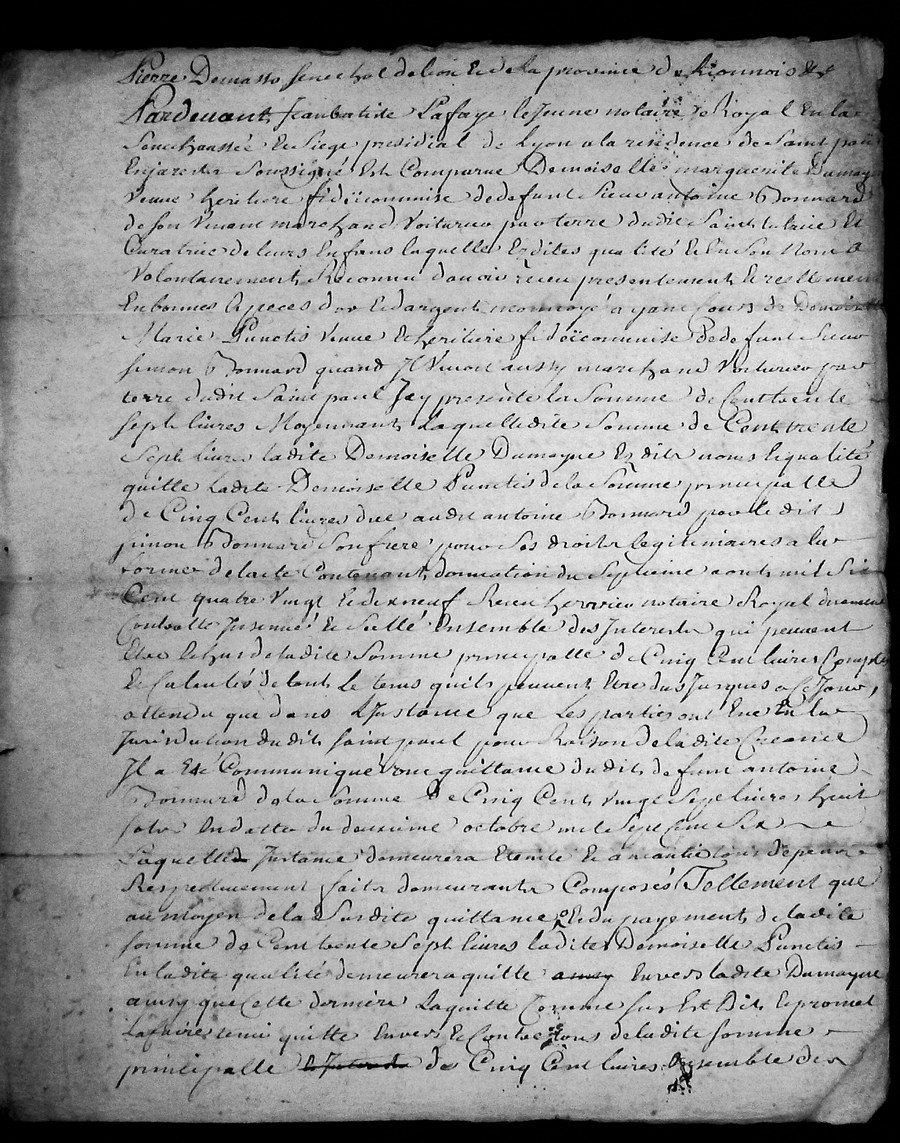 Pierre Demasso senechal de lion et de la province de Lionnois &c
Pardevant Jeanbatiste Lafaye le Jeune notaire Royal En la
Senechaussée Et Siege presidial de Lyon a la residence de Saint paul
Enjarest Soussigné Est Comparue Demoiselle marguerite Dumayne
veuve heritiere fideïcommise de defunt Sieur antoine Bonnard
de son vivant marchand Voiturier par terre dudit Saint tutrice Et
Curatrice de leurs Enfans laquelle Esdites qualité Et En Son Nom a
Volontairement Reconnu d'avoir receu presentement Et reellement
En bonnes Especes d'or Et d'argent monnoyé ayant Cours de Demoiselle
Marie Punctis veuve Et heritiere fideïcommise de defunt Sieur
simon Bonnard quand Il Vivoit aussy marchand Voiturier par
terre dudit Saint paul Icy presente la Somme de Cent trente
sept livres Moyennant Laquelle dite Somme de Cent trente
Sept livres ladite Demoiselle Dumayne Esdits noms Et qualité
quitte Ladite Demoiselle Punctis de la Somme principalle
de Cinq Cent livres due audit antoine Bonnard par ledit
simon Bonnard Son frere pour Ses droits legitimaires a la
forme de lacte Contenant donnation du Septieme aoust mil Six
Cent quatre Vingt Et dixneuf Receu hervier notaire Royal duement
Controllé Insinué Et Sellé Ensemble des Interests qui peuvent
Etre dehus de ladite Somme principalle de Cinq Cent livres Comptés
Et Calculés de tout Le tems quils peuvent Etre dus Jusques a Ce Jour,
attendu que dans LInstance que Les parties ont Eue En la
Jurisdiction dudit Saint paul pour Raison de ladite Creance
Il a Eté Communiqué une quittance dudit defunt antoine
Bonnard de la Somme de Cinq Cent Vingt Sept livres huit
sols En datte du deuxieme octobre mil Sept Cent Six
Laquelle Instance demeurera Eteinte Et aneantie tous depens
Respectivement faits demeurants Composés Tellement que
au moyen de la Susdite quittance Et du payement de ladite
somme de Cent trente Sept livres ladite Demoiselle Punctis
En ladite qualité demeurera quitte Envers ladite Dumayne
ainsy que Cette derniere La quitte Comme sus Est Dit, Et promet
La faire tenir quitte Envers Et Contre tous de ladite somme
principalle de Cinq Cent livres Ensemble des